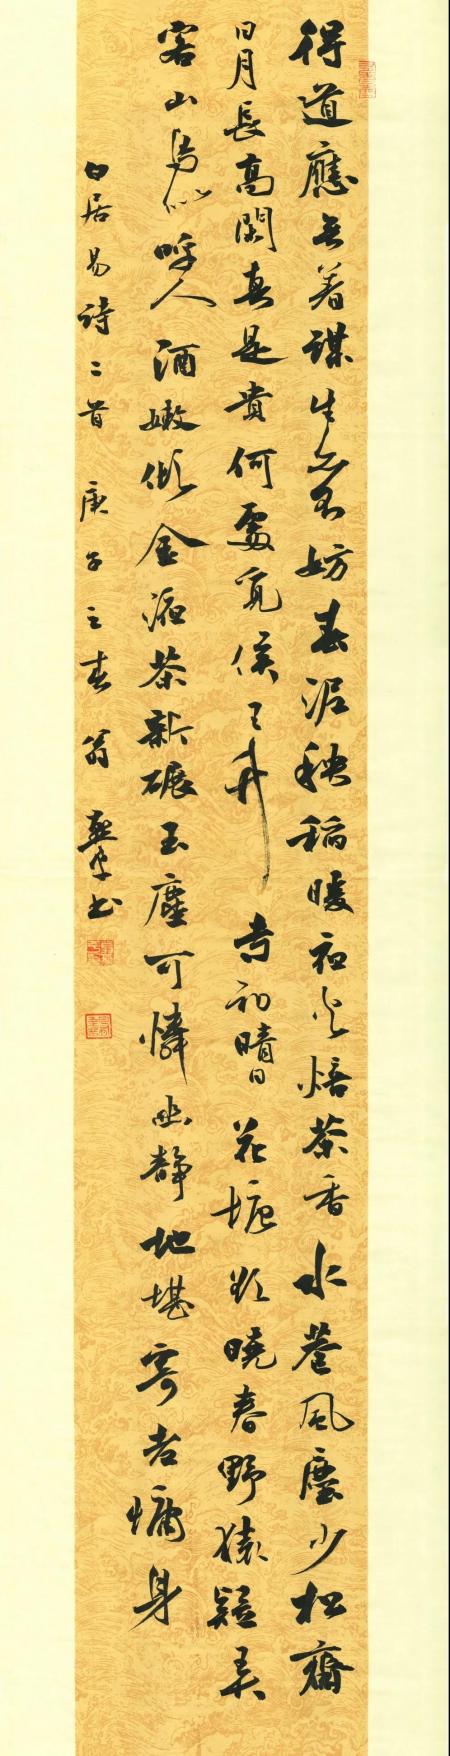 得道應無著謀生亦不妨春泥秧稻暖夜火焙茶香水巷風塵少松齋
日月長高閑真是貴何處覓侯王竹寺初晴日花塘欲曉春野猿疑弄
客山鳥似呼人酒嫩傾金液茶新碾玉塵可憐幽靜地堪寄老慵身
白居易詩二首 庚子之春 翁書